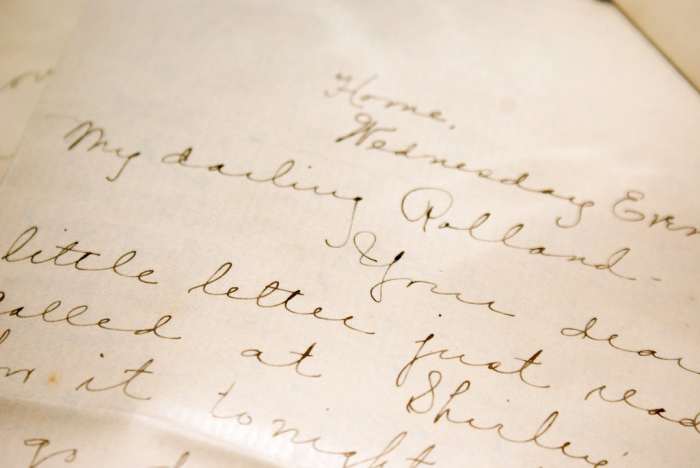 Home,
Wednesday Even
My darling Rolland-
Your dear
little letter just read
called at Shirley
for it tonight
go